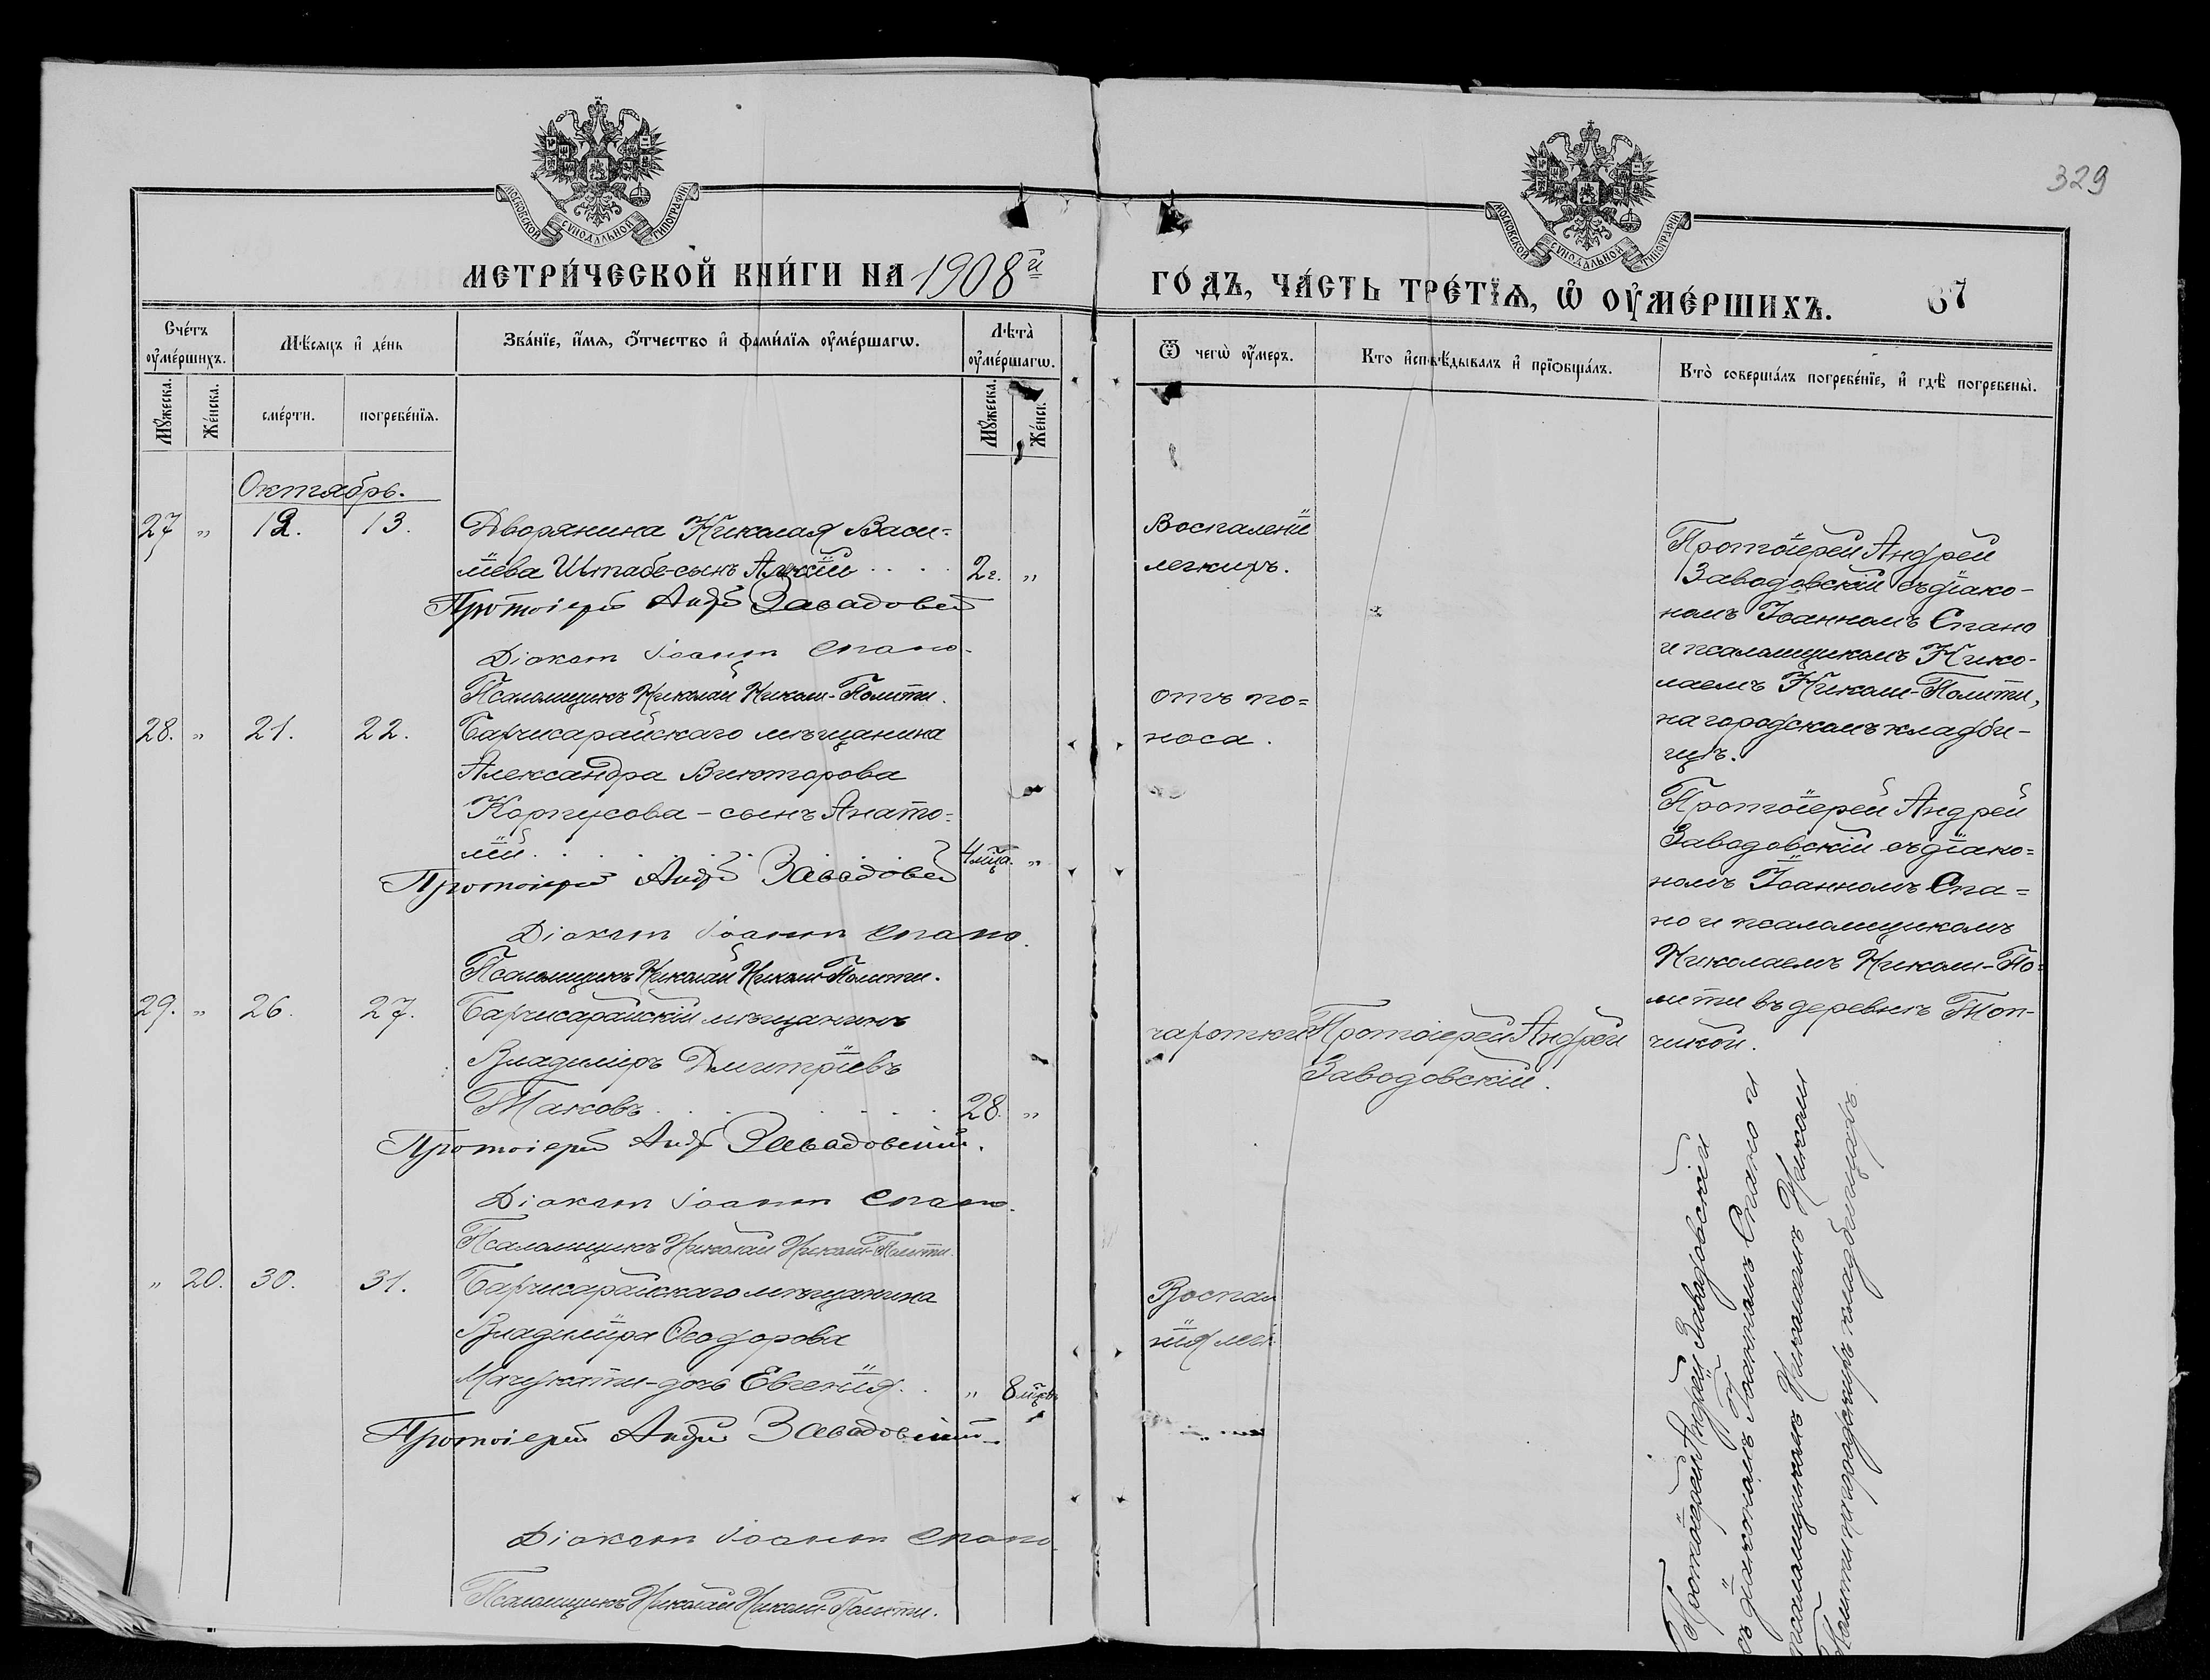 329
МОСКОВСКОЙ СѴНОДАЛЬНОЙ ТИПОГРАФІИ
МОСКОВСКОЙ СѴНОДАЛЬНОЙ ТИПОГРАФІИ
МЕТРИ́ЧЕСКОЙ КНИ́ГИ НА 1908й
ГО́ДЪ, ЧА́СТЬ ТРЕ́ТЇѦ, Ѡ҆ ОУ҆МЕ́РШИХЪ.
67
Счéтъ оу҆мéршихъ.
Мѣ́сѧцъ и҆ дéнь
Звáнїе, и҆́мѧ, ѻ҆́тчество и҆ фами́лїѧ оу҆мéршагѡ.
Лѣ́та оу҆мéршагѡ.
Ѿ чегѡ̀ оу҆́меръ.
Кто и҆сповѣ́дывалъ и҆ прїѻбщáлъ.
Ктò совершáлъ погребéнїе, и҆ гдѣ̀ погребены̀.
Мꙋ́жеска.
Жéнска.
смéрти.
погребéнїѧ.
Мꙋ́жеска.
Жéнск.
Октябрь.
27 " 12. 13. Дворянина Николая Васи=
ліева Штабе-сынъ Алексій . . . . 2г. "
Протоіерей Андрей Завадовскій
Діаконъ Іоаннъ Спано.
Псаломщикъ Николай Николи-Политти.
Воспаленіе
легкихъ.
Протоіерей Андрей
Заводовскій съ діако-
номъ Іоанномъ Спано
и псаломщикомъ Нико-
лаемъ Николи-Политти,
на городскомъ кладби-
щѣ.
28. " 21. 22. Бахчисарайскаго мѣщанина
Александра Викторова
Корпусова - сынъ Анато=
лій . . . . . . . 4 мца. "
Протоіерей Андрей Завадовскій
Діаконъ Іоаннъ Спано.
Псаломщикъ Николай Николи-Политти.
отъ по=
носа.
Протоіерей Андрей
Заводовскій съ діако=
номъ Іоанномъ Спа=
но и псаломщикомъ
Николаемъ Николи-По=
литти въ деревнѣ Топ-
чикой.
29. " 26. 27. Бахчисарайскій мѣщанинъ
Владиміръ Дмитріевъ
Таковъ . . . . . . 28. "
Протоіерей Андрей Завадовскій.
Діаконъ Іоаннъ Спано.
Псаломщикъ Николай Николи-Политти.
чаротки
Протоіерей Андрей
Заводовскій.
" 20. 30. 31. Бахчисарайскаго мѣщанина
Владиміра Ѳеодорова
дочь Евгенія . . " 8 мцевъ
Протоіерей Андрей Завадовскій.
Діаконъ Іоаннъ Спано.
Псаломщикъ Николай Николи-Политти.
Воспал
нія лег.
Протоіерей Андрей Заводовскій
съ діакономъ Іоанномъ Спано и
псаломщикомъ Николаемъ Николи
Политти на городскихъ кладбищахъ.